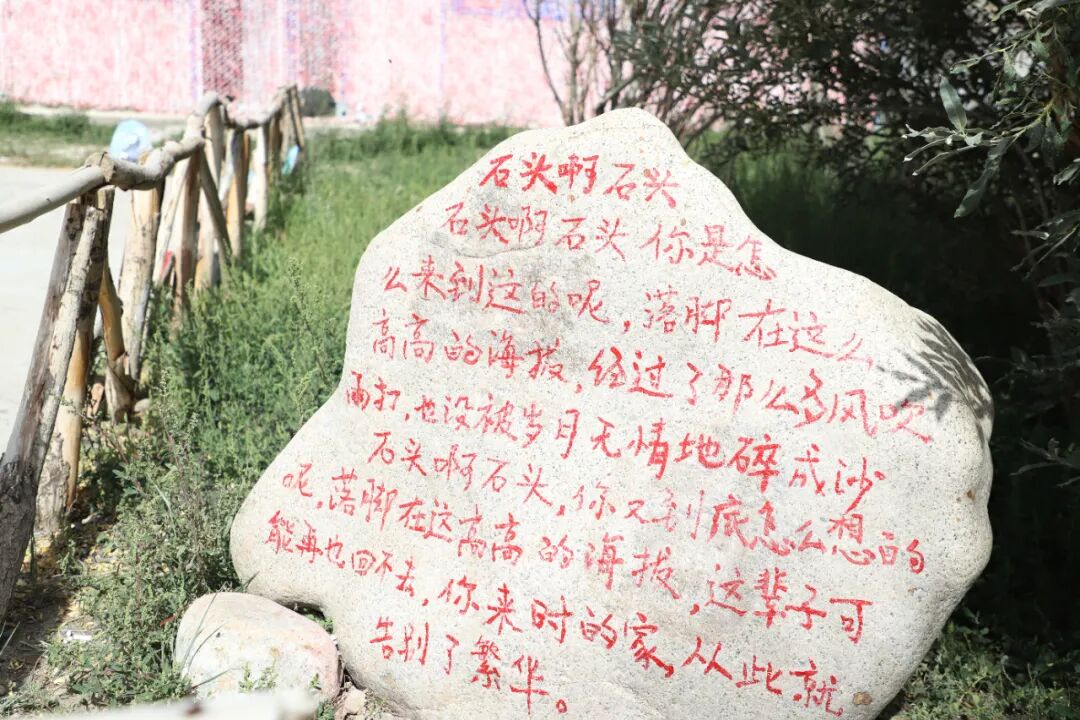 石头啊石头
石头啊石头 你是怎
么来到这的呢，落脚在这么
高高的海拔，经过了那么多风吹
雨打，也没被岁月无情地碎成沙
石头啊石头，你又到底怎么想的
呢，落脚在这高高的海拔，这辈子可
能再也回不去，你来时的家，从此就
告别了繁华。